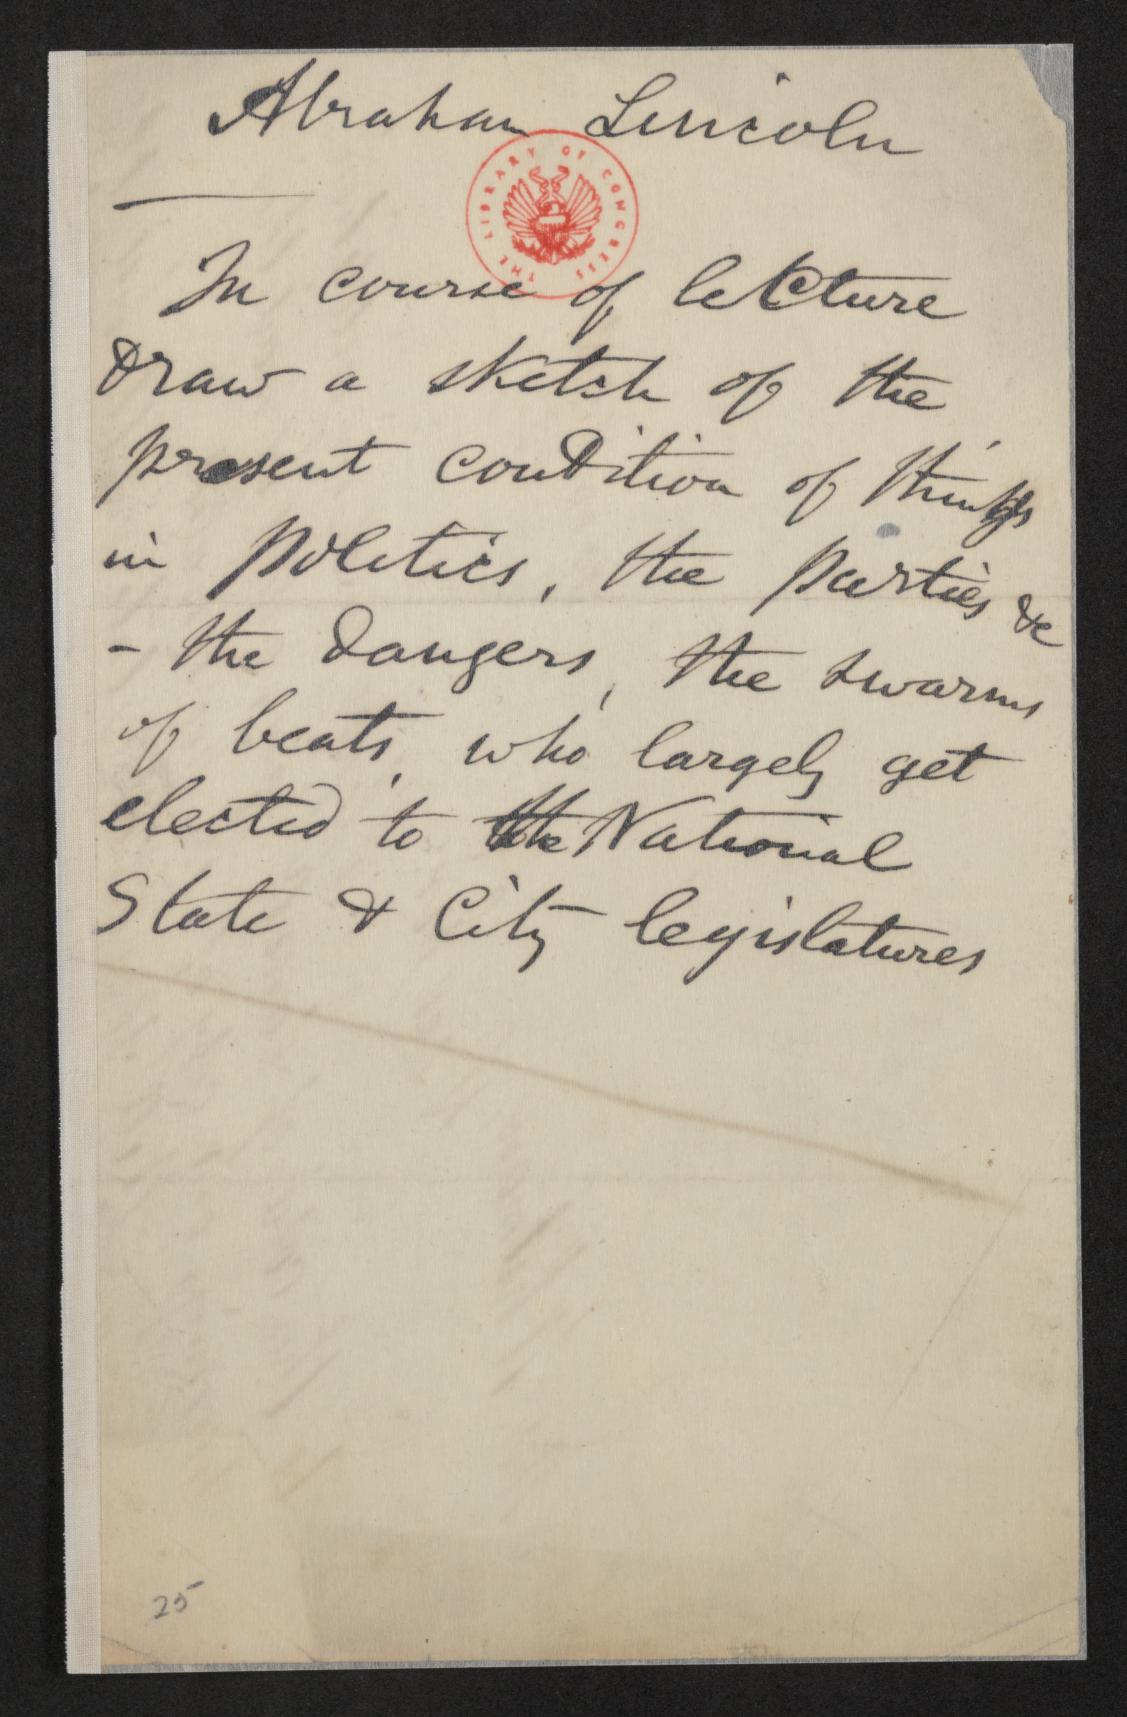 Abraham Lincoln
THE LIBRARY OF CONGRESS
In course of lecture
draw a sketch of the
present condition of things
in politics, the parties &c
– the dangers, the swarms
of beats, who largely get
elected to the National
State & City legislatures
25